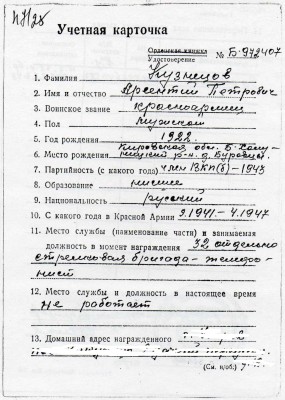 Учетная карточка
Орденская книжка
Удостоверение № Б-972407
1. Фамилия Кузнецов
2. Имя и отчество Арсентий Петрович
3. Воинское звание красноармеец
4. Пол мужской
5. Год рождения 1922.
Кировская обл. Б. Холу-
6. Место рождения ницкий р-н. д.
7. Партийность (с какого года) член ВКП(б) - 1943
8. Образование низшее
9. Национальность русский
10. С какого года в Красной Армии 9.1941 - 4.1947
11. Место службы (наименование части) и занимаемая
должность в момент награждения 32 отдельно
стрелковая бригада-
нист
12. Место службы и должность в настоящее время
не работает
13. Домашний адрес награжденного
(См. н/об.)